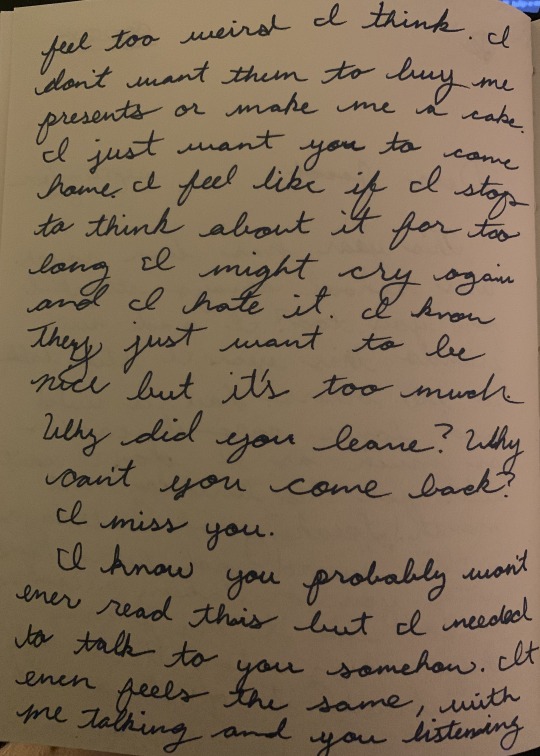 feel too weird I think. I
don't want them to buy me
presents or make me a cake.
I just want you to come
home. I feel like if I stop
to think about it for too
long I might cry again
and I hate it. I know
they just want to be
nice but it's too much.
Why did you leave? Why
can't you come back?
I miss you.
I know you probably won't
ever read this but I needed
to talk to you somehow. It
even feels the same, with
me talking and you listening